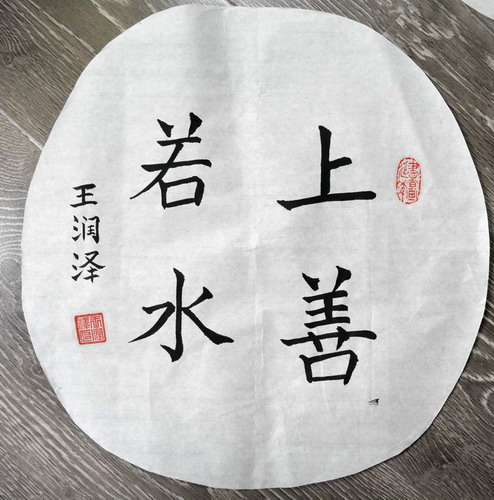 上善
若水
王润泽